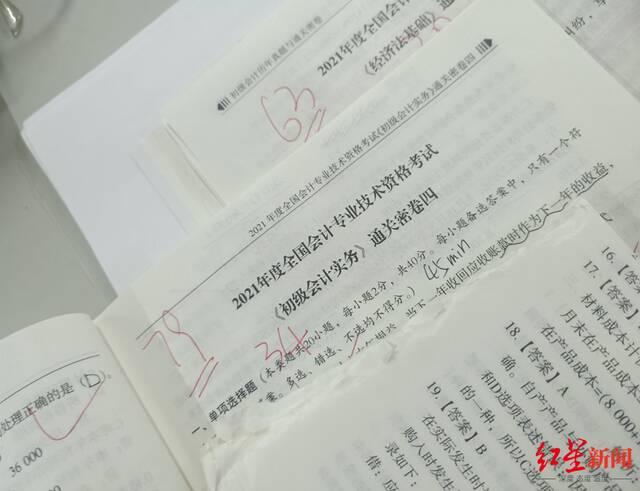 初级会计历年真题与通关密卷
2021年度全国会计
《经济法基础》
63
2021年度全国会计专业技术资格考试《初级会计实务》通关密卷四
2021年度全国会计专业技术资格考试
《初级会计实务》通关密卷四
79
34
45min
一、单项选择题（本类题共20小题，每小题2分，共40分。每小题备选答案中，只有一个符
多选、错选、不选均不得分。）
当下一年收回应收账款时作为下一年的收益，
处理正确的是（D）。
36 000
16.【答
17.【答
材料成本计
月末在产品成本
在产品成本=(8 000
18.【答案】A
确。自产产品与
和D选项表述
19.【答案】B
的一种，所以C选项
在实际发生时
购入时发生
录如下：
借：应
红星新闻
深度 态度 温度